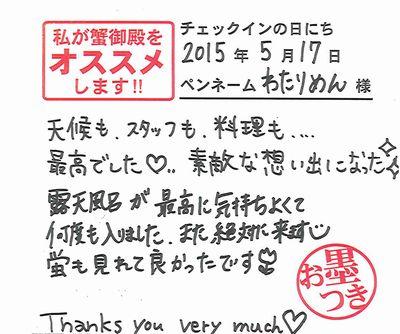 私が蟹御殿を
オススメ
します!!
チェックインの日にち
2015年5月17日
ペンネーム わたりめん 様
天候も、スタッフも、料理も....
最高でした♡.. 素敵な想い出になった✧
露天風呂が最高に気持ちよくて
何度も入りました。また絶対に来ます
蛍も見れて良かったです
お墨つき
Thanks you very much♡